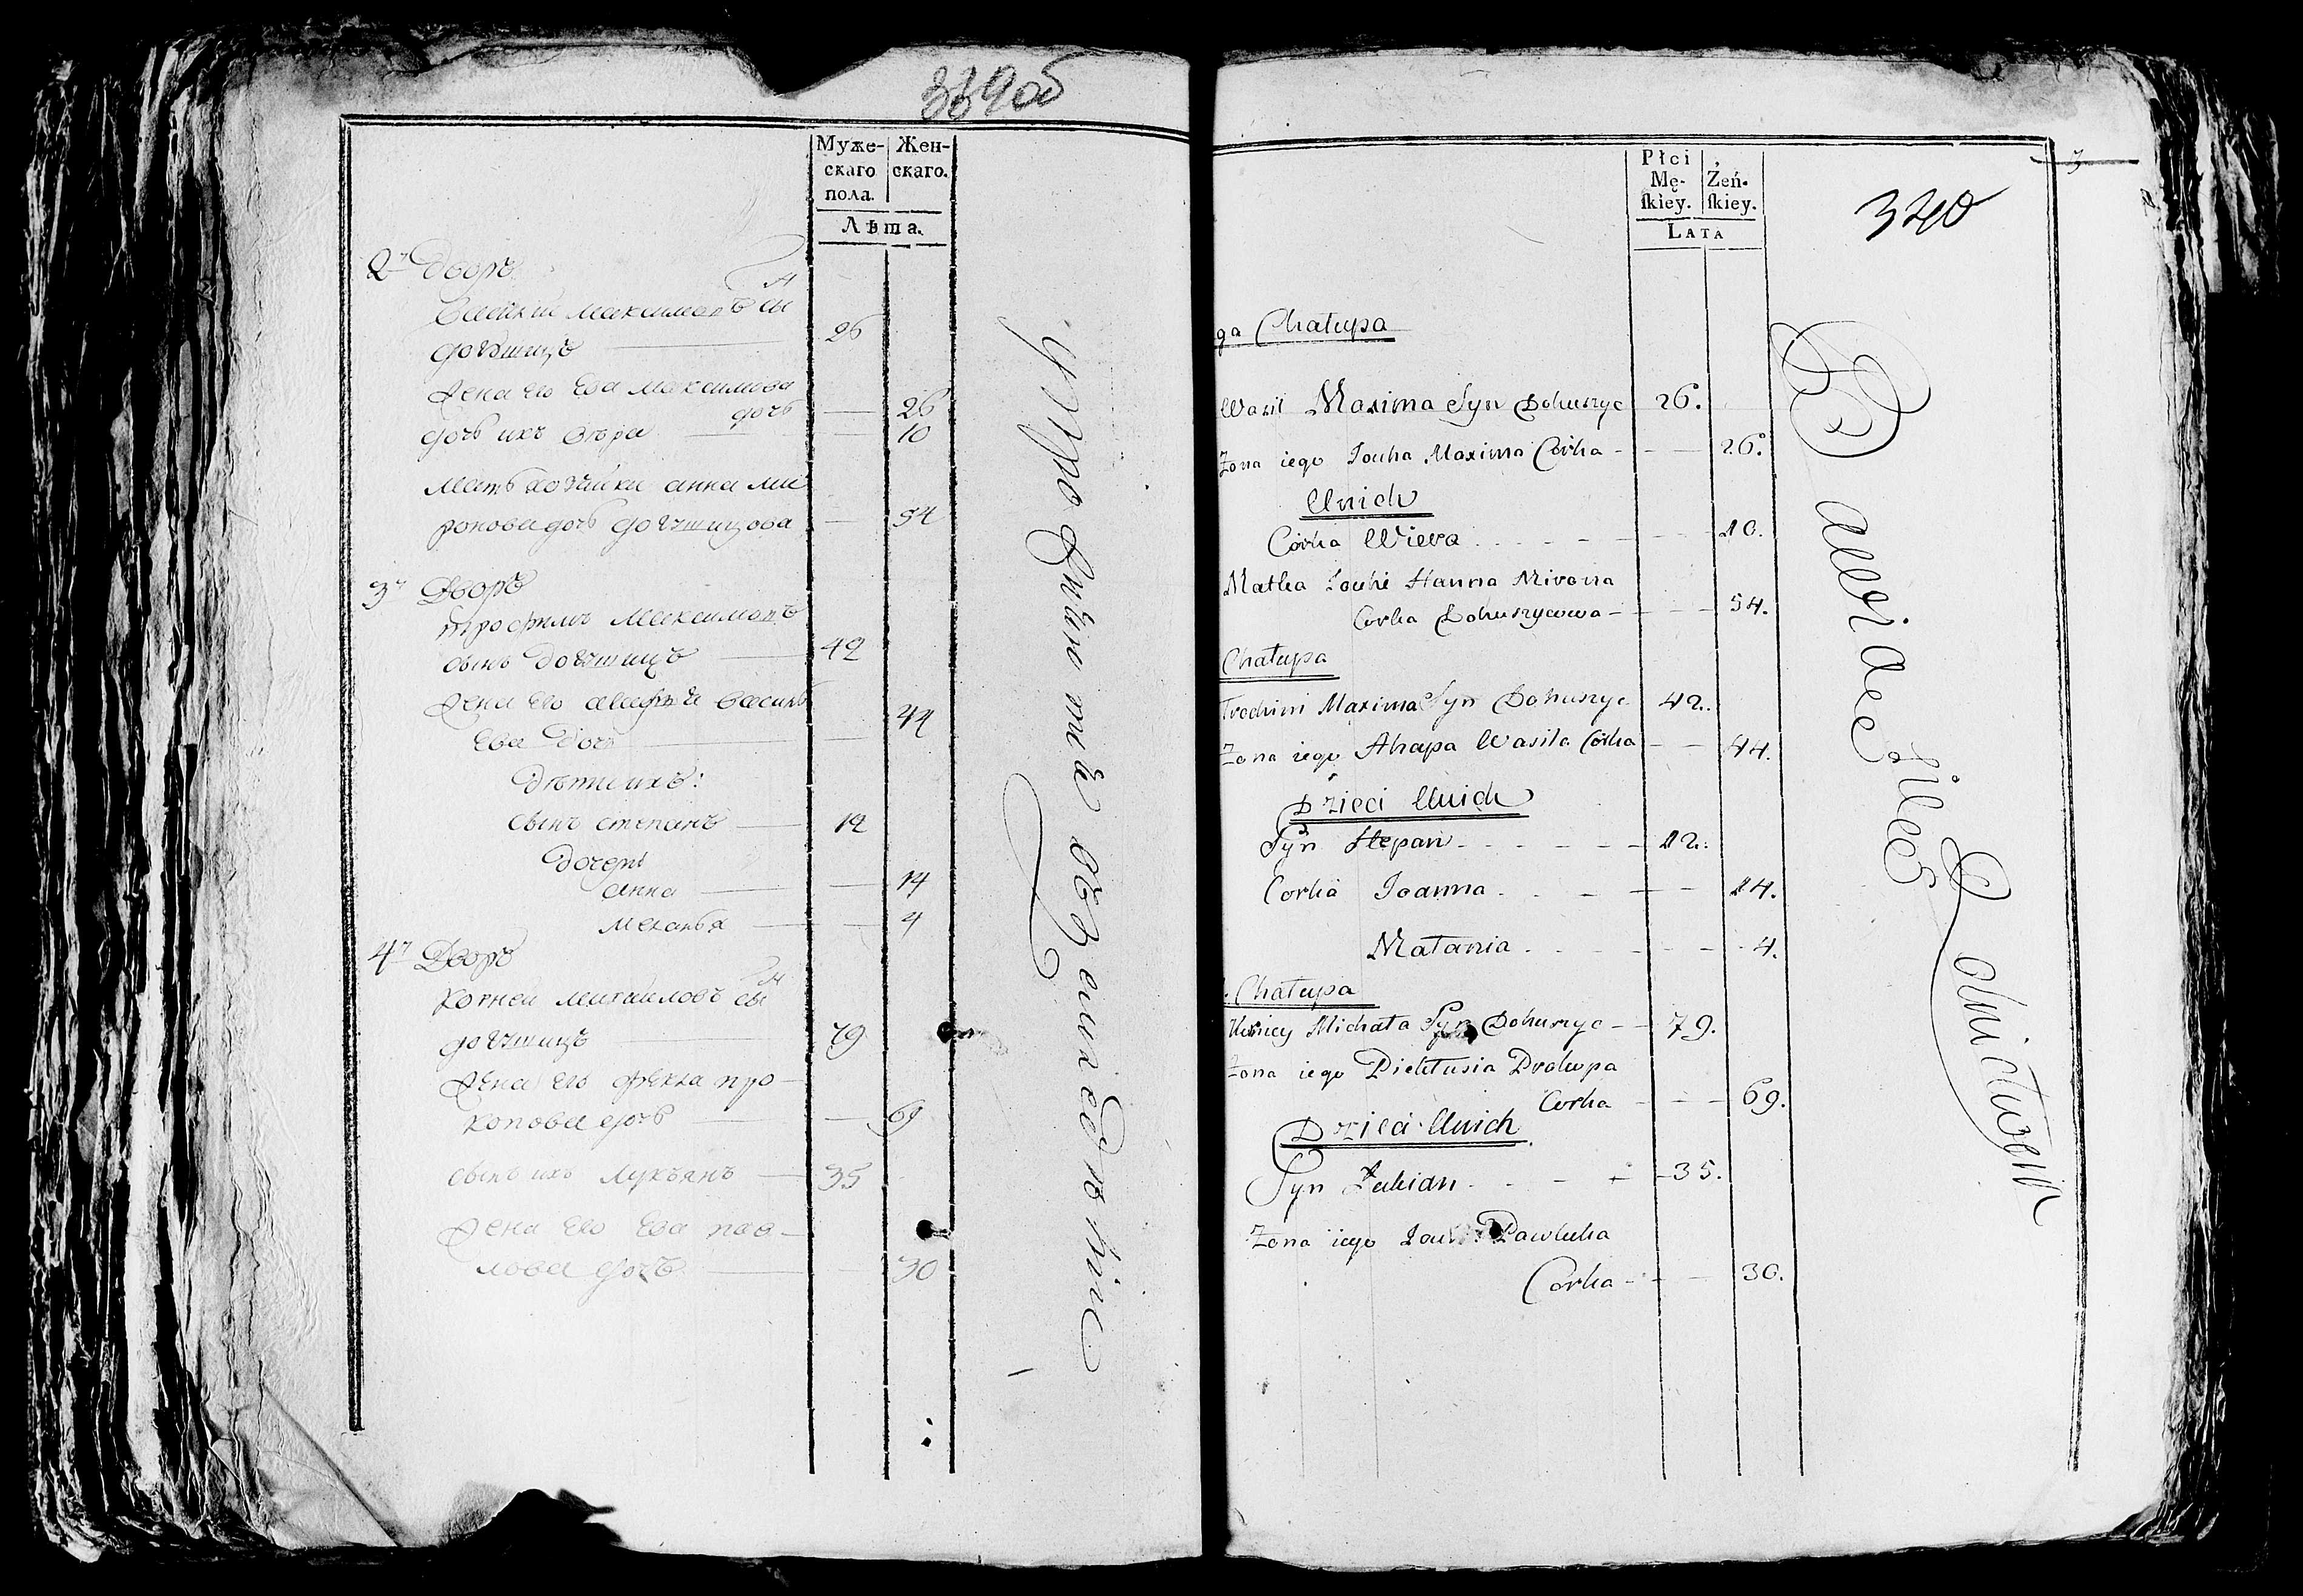 339об
Муже-
скаго
пола.
Жен-
скаго.
Лѣта.
2й Дворъ
Василии Максимовъ сы
н
Догушицъ 26
Жена его Ева Максимова
дочь 26
дочь ихъ Вѣра 10
Мать хозяйки анна Ми
ронова дочь Догушицова 54
3й Дворъ
трофимъ Максимовъ
сынъ Догушицъ 42
Жена его агафья Василь
Ева Дочь 44
Дѣти ихъ:
сынъ степанъ 12
Дочери
анна 14
меланья 4
4й Дворъ
Корнеи михаиловъ сы
н
догушицъ 79
Жена его фекла про-
копова дочь 69
сынъ ихъ Лукьянъ 35
Жена его Ева пав-
лова дочь 30
упражнение
въ
3
340
Płci
Mę-
ſkiey.
Żeń-
ſkiey.
LATA
ga Chałupa
Wasil Maxima Syn Dohuszyc 26.
Zona iego Jouha Maxima Córka - 26.
Unich
Córka Wiera 10.
Matka Jouhi Hanna Mirona
Corka Dohuszycowa - 54.
Chałupa
Trochim Maxima Syn Dohuszyc 42.
Zona iego Ahapa Wasila Córka 44.
Dzieci Unich
Syn Stepan 12.
Corka Joanna 14.
Małania 4.
Chałupa
Michała Syn Dohuszyc - 79.
Zona iego Diektusia Prokopa
Corka 69.
Dzieci Unich
Syn Łukian 35.
Zona iego Pawluka
Corka - 30.
Rolnictwem